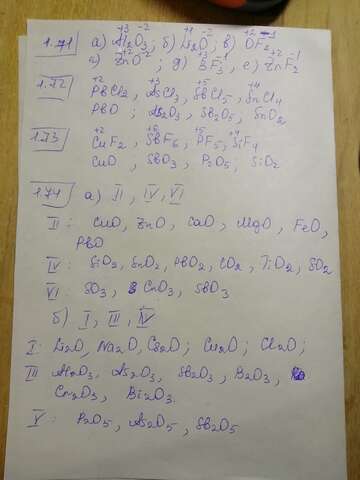 1.71 а) Al₂O₃⁺³ ⁻²; б) Li₂O⁺¹ ⁻²; в) OF₂⁺² ⁻¹
г) ZnO⁺² ⁻²; д) BF₃⁺³ ⁻¹; е) ZnF₂⁺² ⁻¹
1.72 PbCl₂⁺², AsCl₃⁺³, SbCl₅⁺⁵, SnCl₄⁺⁴
PbO; As₂O₃, Sb₂O₅, SnO₂
1.73 CuF₂⁺², SbF₆⁺⁶, PF₅⁺⁵, SiF₄⁺⁴
CuO, SbO₃, P₂O₅, SiO₂
1.74 а) II, IV, VI
II: CuO, ZnO, CaO, MgO, FeO,
PbO
IV: SiO₂, SnO₂, PbO₂, CO₂, TiO₂, SO₂
VI: SO₃, CrO₃, SbO₃
б) I, III, IV
I: Li₂O, Na₂O, Cs₂O; Cu₂O; Cl₂O;
III Al₂O₃, As₂O₃, Sb₂O₃, B₂O₃,
Cr₂O₃, Bi₂O₃.
V: P₂O₅, As₂O₅, Sb₂O₅